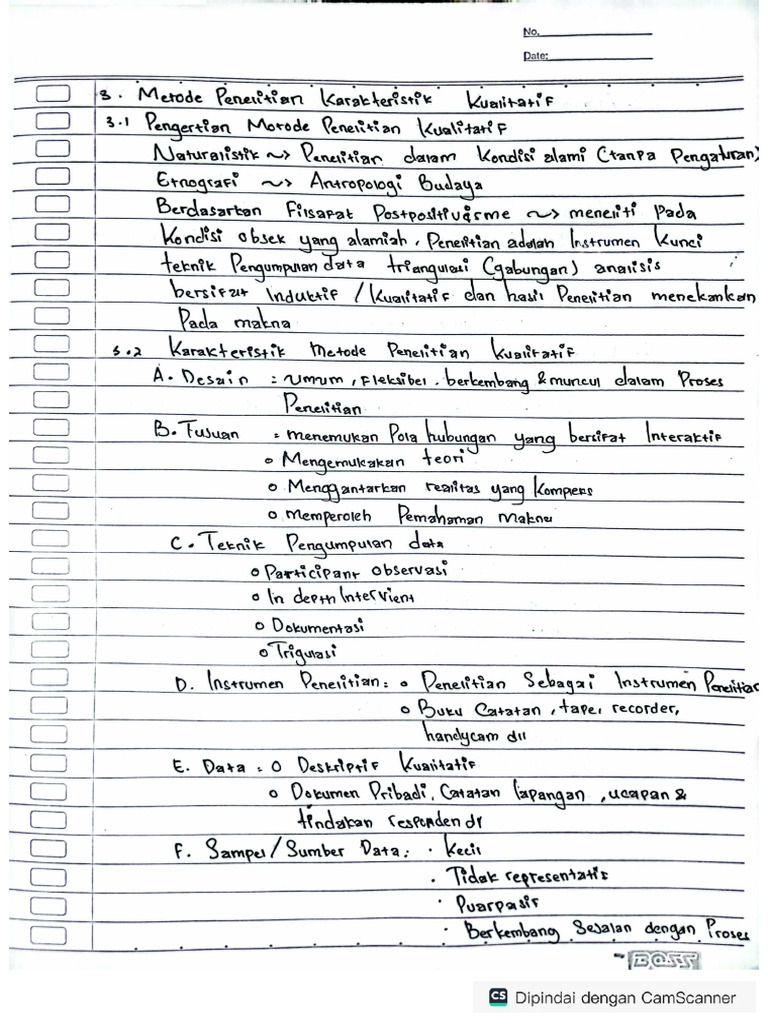 No.
Date:
3. Metode Penelitian Karakteristik Kualitatif
3.1 Pengertian Motode Penelitian Kualitatif
Naturalistik ~> Penelitian dalam Kondisi alami (tanpa Pengaturan)
Etnografi ~> Antropologi Budaya
Berdasarkan Filsapat Postpositivisme ~> meneliti Pada
Kondisi obsek yang alamiah, Penelitian adalah Instrumen Kunci
teknik Pengumpulan data triangulasi (gabungan) analisis
bersifat Induktif / Kualitatif dan hasil Penelitian menekankan
Pada makna
3.2 Karakteristik Metode Penelitian Kualitatif
A. Desain : Umum, Fleksibel, berkembang & muncul dalam Proses
Penelitian
B. Tusuan : menemukan Pola hubungan yang bersifat Interaktif
o Mengemukakan teori
o Menggantarkan realitas yang Kompleks
o Memperoleh Pemahaman Makna
C. Teknik Pengumpulan data
o Participant observasi
o In depth Intervient
o Dokumentasi
o Trigulasi
D. Instrumen Penelitian : o Penelitian Sebagai Instrumen Penelitian
o Buku Catatan, tape, recorder,
handycam dll
E. Data : o Deskriptif Kualitatif
o Dokumen Pribadi, Catatan lapangan, ucapan &
tindakan responden dl
F. Sampel / Sumber Data : · Kecil
· Tidak representatis
· Puarpasif
· Berkembang Sesalan dengan Proses
BOSS
CS Dipindai dengan CamScanner